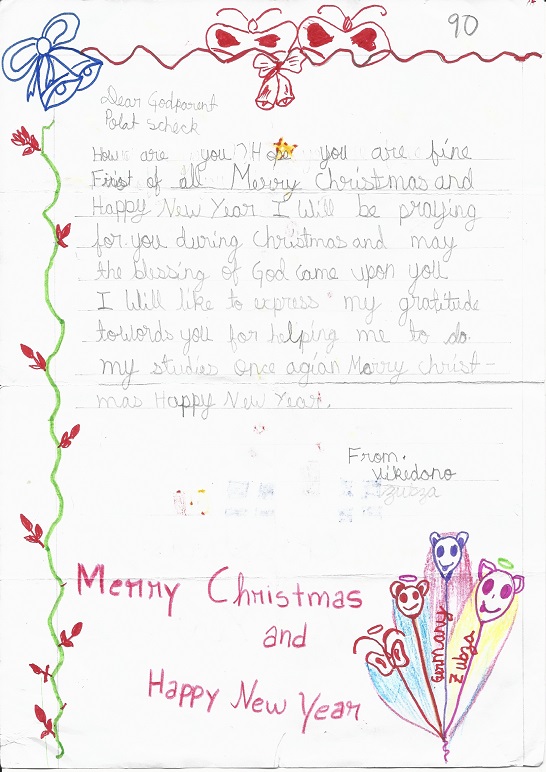 90
Dear Godparent
Polat Scheck
How are you? Hope you are fine
First of all Merry Christmas and
Happy New Year I Will be praying
for you during Christmas and may
the blessing of God came upon you
I Will like to express my gratitude
towords you for helping me to do
my studies Once agian Merry christ-
mas Happy New Year.
From.
zubza
Merry Christmas
and
Happy New Year
Germany
Zubza